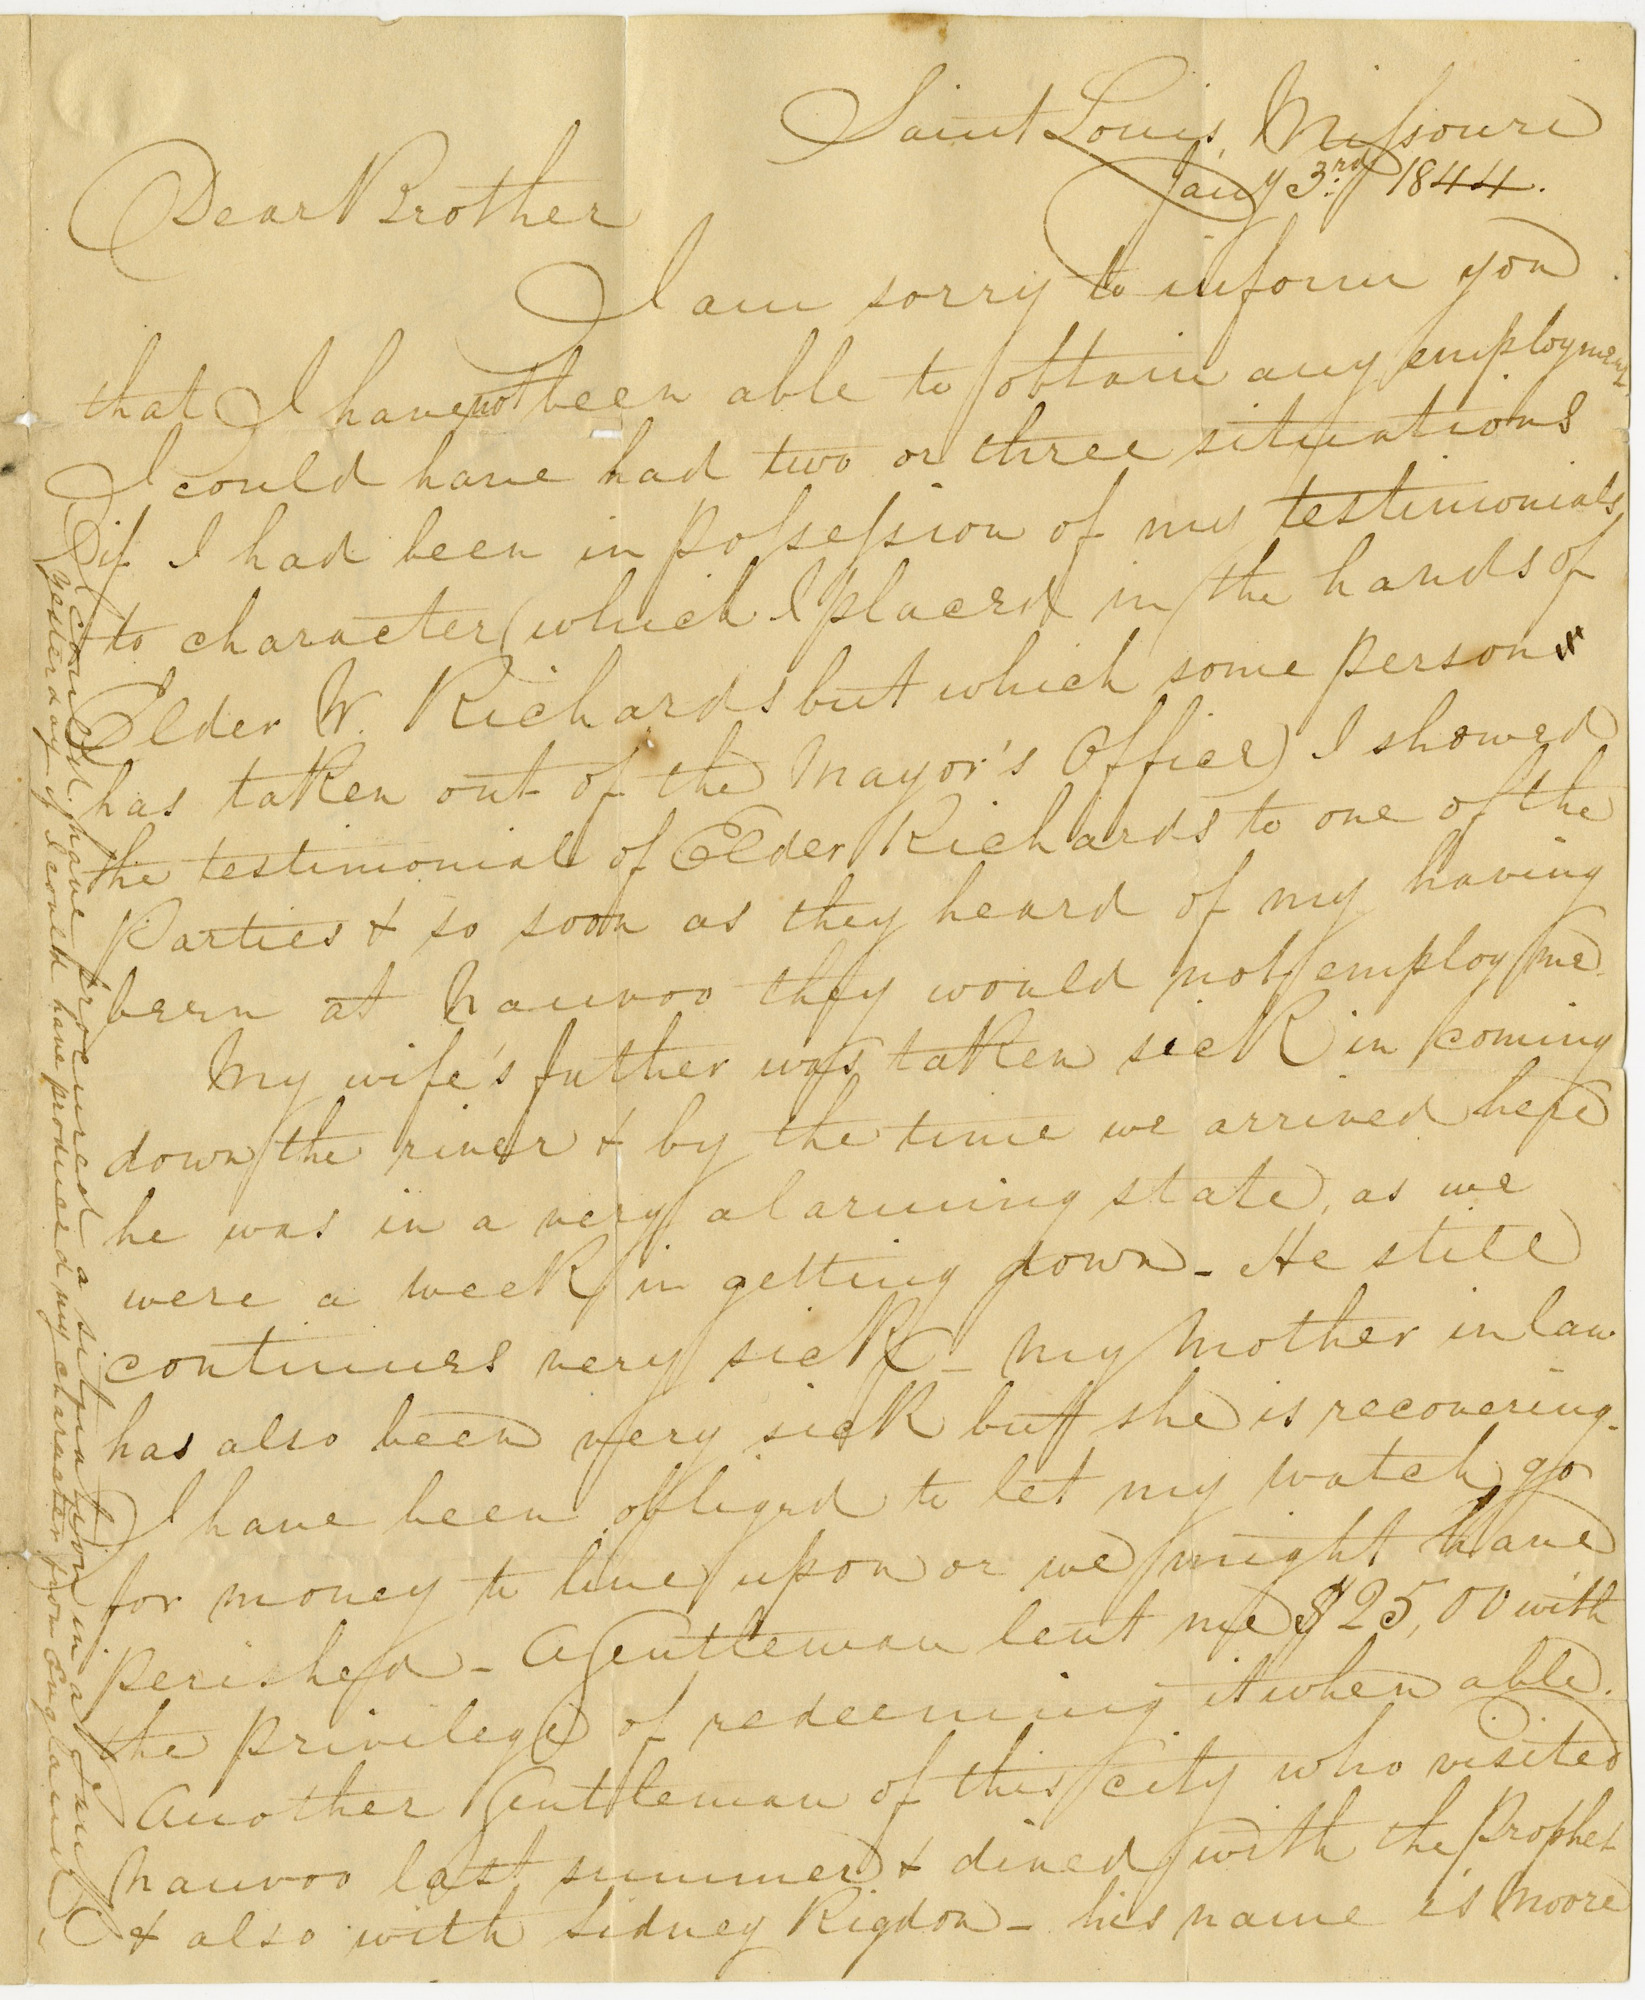 Saint Louis, Missouri
Jany 3rd 1844.
Dear Brother
I am sorry to inform you
that I have not been able to obtain any employment.
I could have had two or three situations
if I had been in possession of my testimonials
to character (which I placed in the hands of
Elder W. Richards but which some person
has taken out of the Mayor's Office) I showed
the testimonial of Elder Richards to one of the
Parties & so soon as they heard of my having
been at Nauvoo they would not employ me.
My wife's father was taken sick in coming
down the river & by the time we arrived here
he was in a very alarming state, as we
were a week in getting down - He still
continues very sick - my mother in law
has also been very sick but she is recovering.
I have been obliged to let my watch go
for money to live upon or we might have
perished - A Gentleman lent me $25,00 with
the privilege of redeeming it when able.
Another Gentleman of this city who visited
Nauvoo last summer & dined with the Prophet
& also with Sidney Rigdon - his name is Moore
I could have procured a situation in a family
yesterday if I could have produced my character from England.